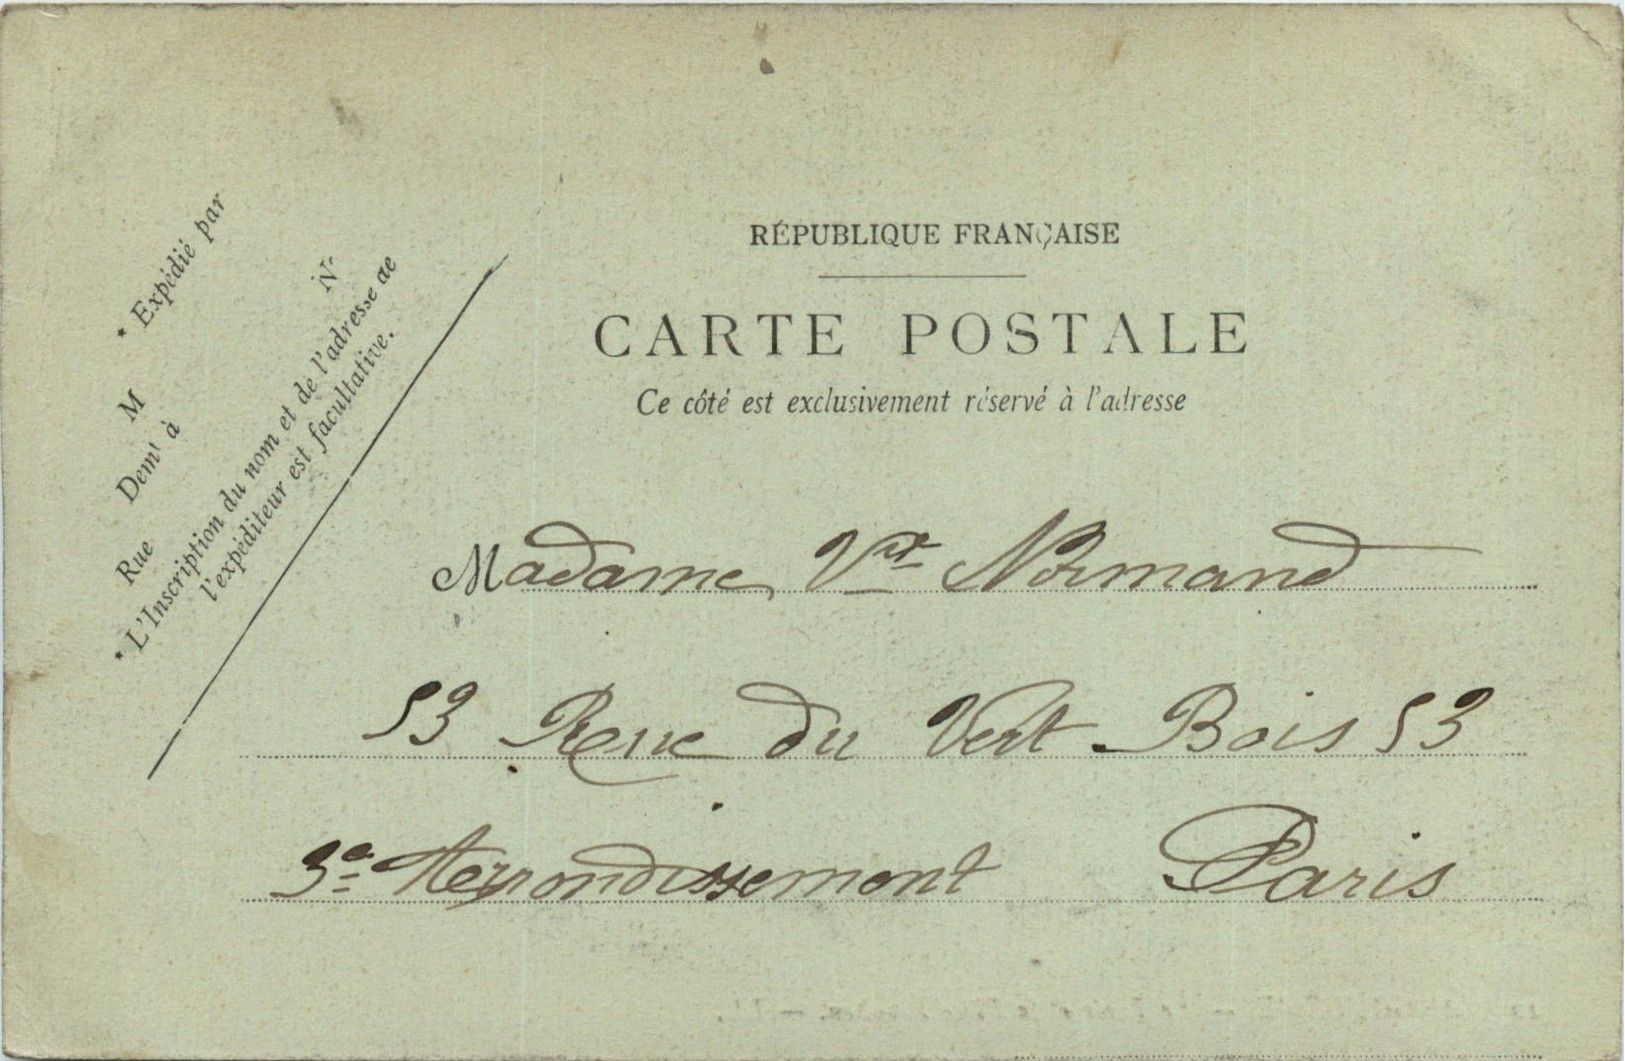 RÉPUBLIQUE FRANÇAISE
CARTE POSTALE
Ce côté est exclusivement réservé à l'adresse
* Expédié par
M
Demt à
Rue Nr
* L'Inscription du nom et de l'adresse de
l'expéditeur est facultative.
Madame Vve Normand
53 Rue du Vert Bois 53
3e Arrondissement Paris